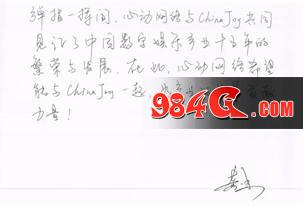 弹指一挥间，心动网络与ChinaJoy共同
见证了中国数字娱乐产业十五年的
繁荣与发展。在此，心动网络希望
能与ChinaJoy一起，
力量！
984G.com